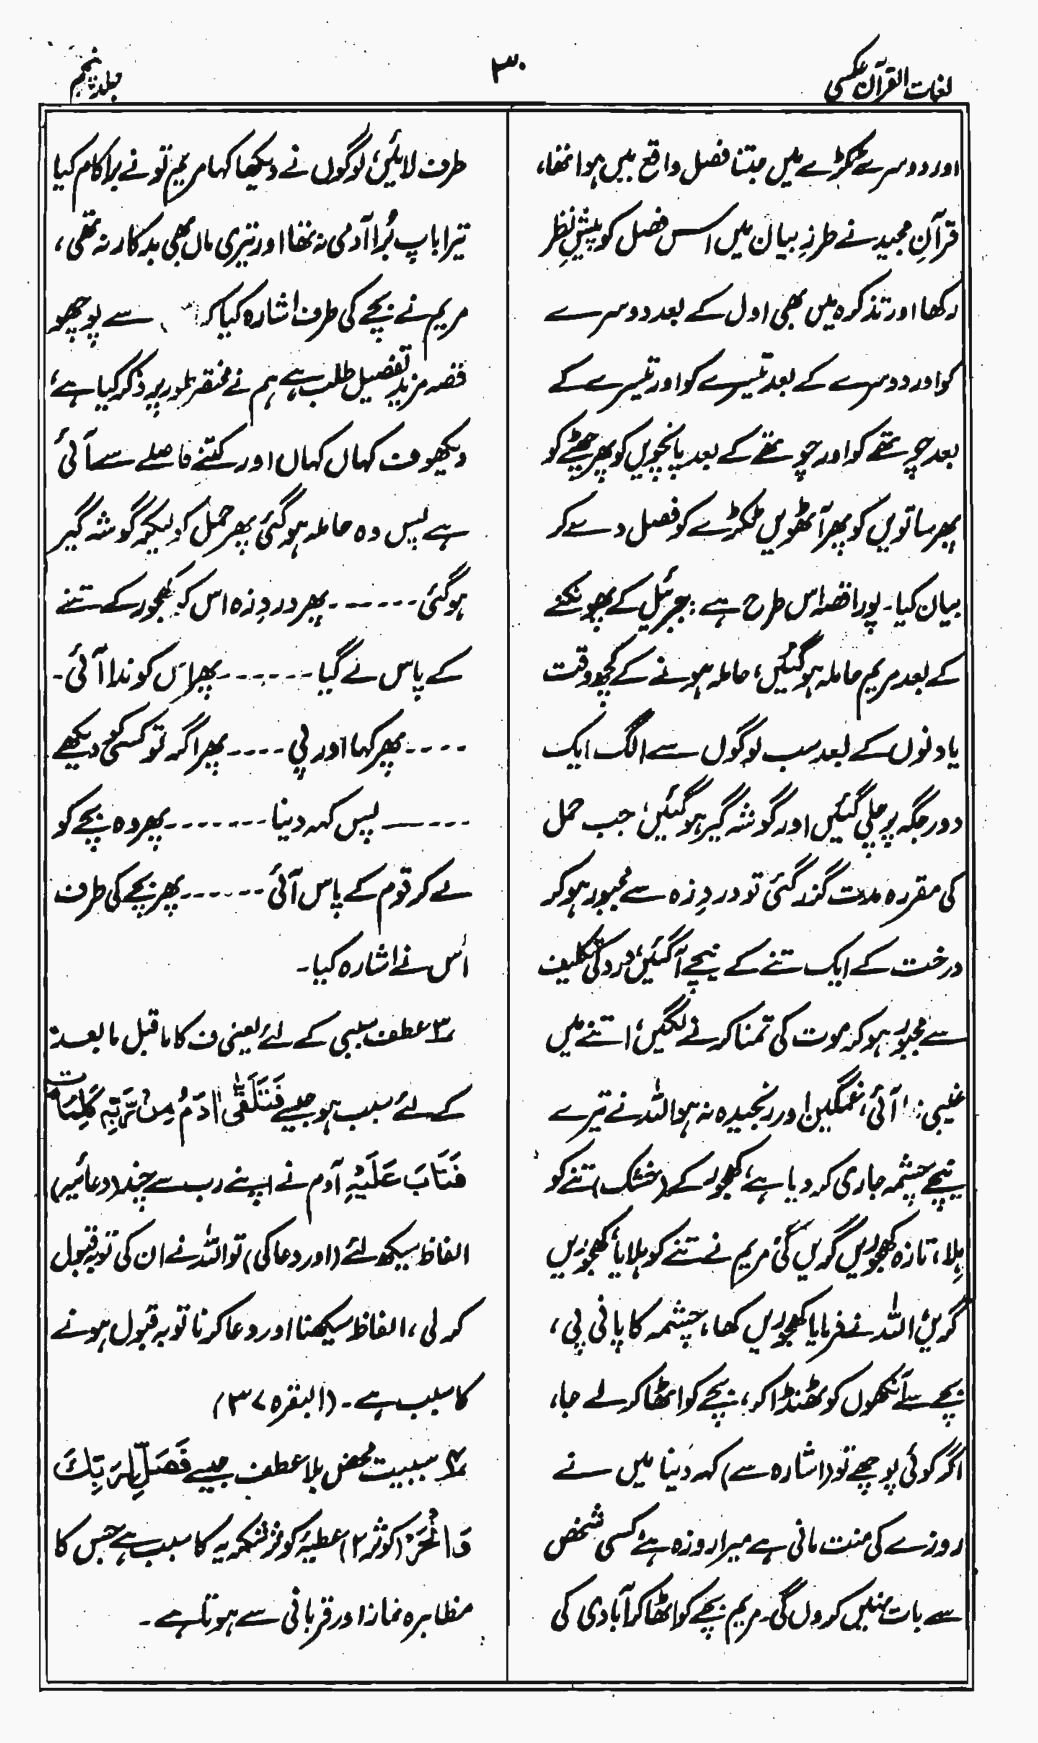 لغات القرآن عکسی
۳۰
جلد پنجم
اور دوسرے ٹکڑے میں جتنا فصل واقع میں ہوا تھا،
قرآنِ مجید نے طرزِ بیان میں اس فصل کو پیشِ نظر
رکھا اور تذکرہ میں بھی اول کے بعد دوسرے
کو اور دوسرے کے بعد تیسرے کو اور تیسرے کے
بعد چوتھے کو اور چوتھے کے بعد پانچویں کو پھر چھٹے کو
پھر ساتویں کو پھر آٹھویں ٹکڑے کو فصل دے کر
بیان کیا۔ پورا قصہ اس طرح ہے: جبرئیل کے پھونکنے
کے بعد مریم حاملہ ہوگئیں، حاملہ ہونے کے کچھ وقت
یا دنوں کے بعد سب لوگوں سے الگ ایک
دور جگہ پر چلی گئیں اور گوشہ گیر ہوگئیں، جب حمل
کی مقررہ مدت گذر گئی تو دردِ زہ سے مجبور ہو کر
درخت کے ایک تنے کے نیچے آگئیں، درد کی تکلیف
سے مجبور ہو کر موت کی تمنا کرنے لگیں، اتنے میں
غیبی آئی، غمگین اور رنجیدہ نہ ہو اللہ نے تیرے
نیچے چشمہ جاری کر دیا ہے، کھجور کے (خشک) تنے کو
ہلا، تازہ کھجوریں گریں گی، مریم نے تنے کو ہلایا، کھجوریں
گریں، اللہ نے فرمایا کھجوریں کھا، چشمہ کا پانی پی،
بچے سے آنکھوں کو ٹھنڈا کر، بچے کو اٹھا کر لے جا،
اگر کوئی پوچھے تو (اشارہ سے) کہہ دینا میں نے
روزے کی منت مانی ہے میرا روزہ ہے، کسی شخص
سے بات نہیں کروں گی۔ مریم بچے کو اٹھا کر آبادی کی
طرف لائیں، لوگوں نے دیکھا کہا مریم تو نے برا کام کیا
تیرا باپ بُرا آدمی نہ تھا اور تیری ماں بھی بدکار نہ تھی،
مریم نے بچے کی طرف اشارہ کیا کہ سے پوچھو
قصہ مزید تفصیل طلب ہے ہم نے مختصر طور پر ذکر کیا ہے،
دیکھو ف کہاں کہاں اور کتنے فاصلے سے آئی
ہے پس وہ حاملہ ہوگئی پھر حمل کو لیکر گوشہ گیر
ہوگئی ------ پھر دردِ زہ اس کو کھجور کے تنے
کے پاس لے گیا ------ پھر اس کو ندا آئی۔
---- پھر کہا اور پی ---- پھر اگر تو کسی کو دیکھے
----- پس کہہ دینا ------- پھر وہ بچے کو
لے کر قوم کے پاس آئی ------ پھر بچے کی طرف
اُس نے اشارہ کیا۔
۳؎ عطف سببی کے لئے یعنی ف کا ماقبل مابعد
کے لئے سبب ہو جیسے فَتَلَقّٰی اٰدَمُ مِنْ رَّبِّہٖ کَلِمَاتٍ
فَتَابَ عَلَیْہِ آدم نے اپنے رب سے چند (دعائیہ)
الفاظ سیکھ لئے (اور دعا کی) تو اللہ نے ان کی توبہ قبول
کر لی، الفاظ سیکھنا اور دعا کرنا توبہ قبول ہونے
کا سبب ہے۔ (البقرہ ۳۷)
۴؎ سببیت محض بلا عطف جیسے فَصَلِّ لِرَبِّکَ
وَانْحَرْ (کوثر ۲) عطیۂ کوثر شکریہ کا سبب ہے جس کا
مظاہرہ نماز اور قربانی سے ہوتا ہے۔